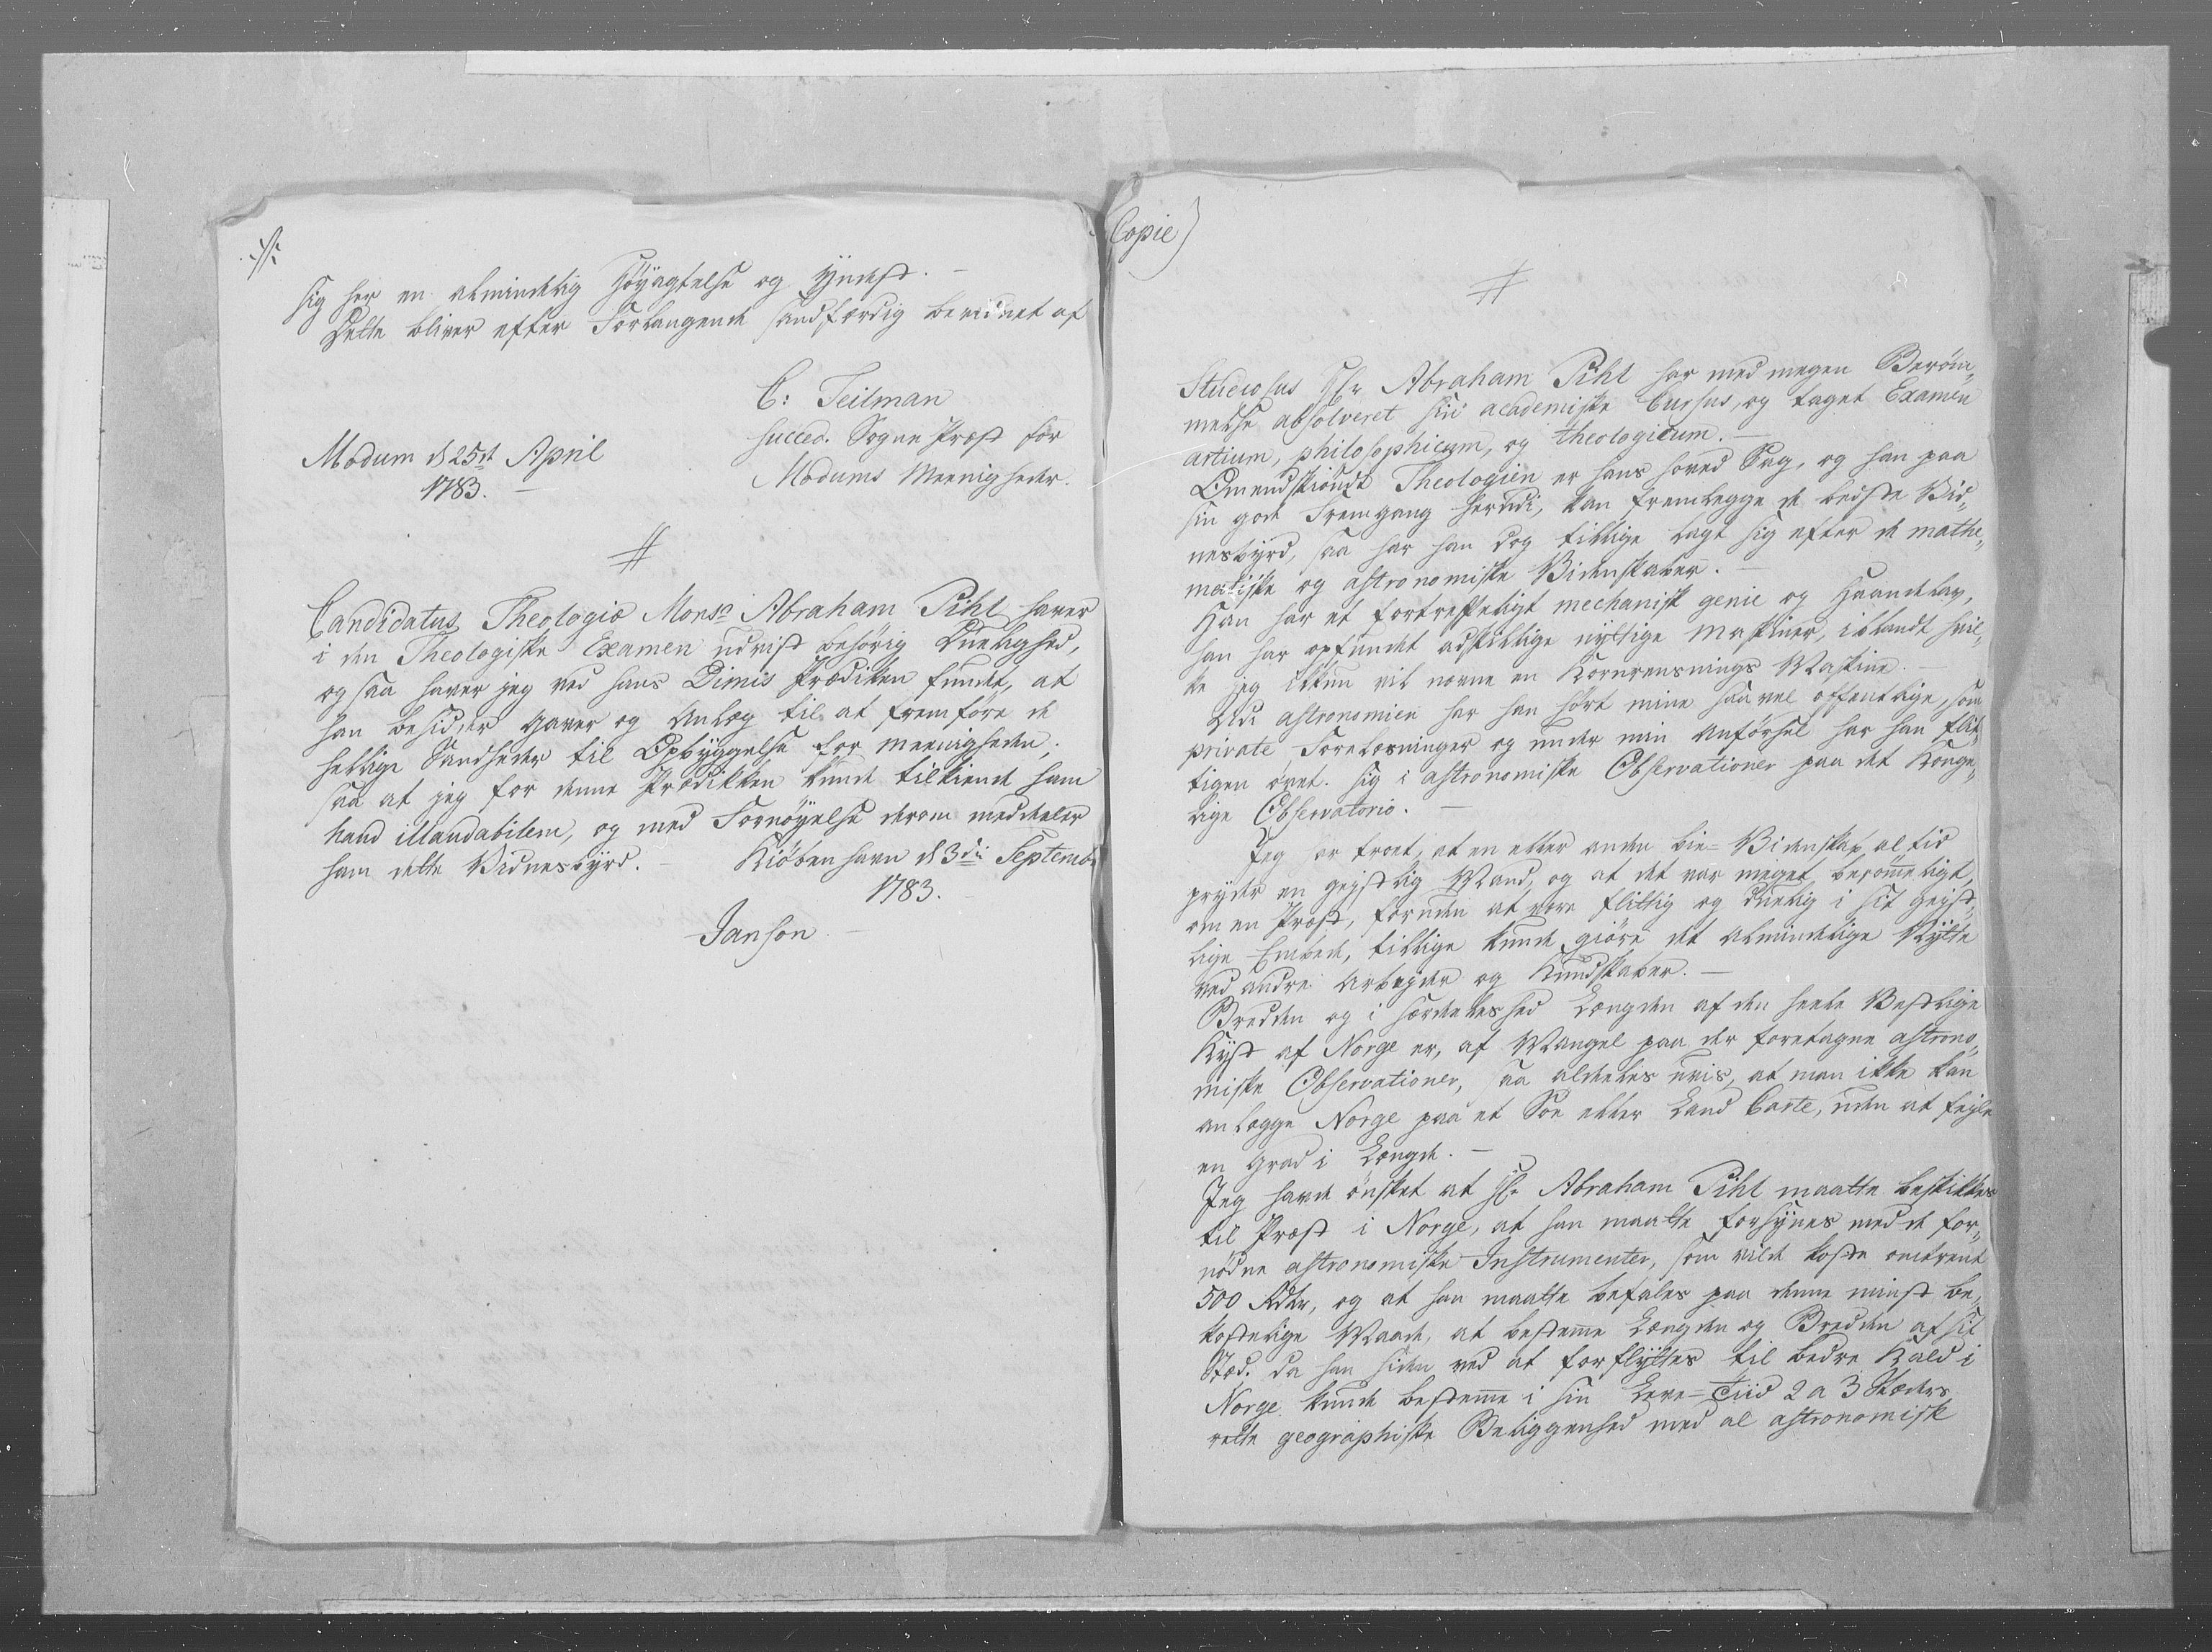 ./.
sig her en almindelig Höyagtelse og Yndest. –
Dette bliver efter Forlangende sandfærdig bevidnet af
C: Teilman
succed. Sogne Præst for
Modums Meenigheder.
Modum d 25de April
1783. –
#
Candidatus Theologiæ Monsr Abraham Pihl haver
i den Theologiske Examen udvist behörig Duelighed,
og saa haver jeg ved hans Dimis Prædiken fundet, at
han besidder Gaver og Anlæg til at fremföre de
hellige Sandheder til Opbyggelse for Meenigheden,
saa at jeg for denne Prædikken kunde tilkiende ham
haud illaudabilem, og med Fornöyelse derom meddeeler
ham dette Vidnesbyrd. – Kiöbenhavn d 3die Septembr
1783.
Janson. –
Copie)
#
Studiosus Hr Abraham Pihl har med megen Beröm„
melse absolveret sin academiske Cursus, og taget Examen
artium, philosophicum, og theologicum. –
Omendskiöndt Theologien er hans hoved Sag, og han paa
sin gode Fremgang herudi, kan fremlegge de bedste Vid„
nesbyrd, saa har han dog tillige lagt sig efter de mathe„
matiske og astronomiske Videnskaber. –
Han har et fortreffeligt mechanisk genie og Haandelav,
han har opfundet adskillige nyttige Maskiner, iblandt hvil„
ke jeg ikkun vil nevne en Kornrensnings Maskine. –
Udi astronomien har han hört mine saavel offentlige, som
private Forelæsninger og under min Anförsel har han flit„
tigen övet sig i astronomiske Observationer paa det Konge„
lige Observatorio. –
Jeg er troet, at en eller anden bie-Videnskab altid
pryder en geistlig Mand, og at det var meget berömmeligt,
om en Præst, foruden at være flittig og duelig i sit geist„
lige Embede, tillige kunde giöre det almindelige Nytte
ved andre Arbeyder og Kundskaber. –
Bredden og i særdeleshed Længden af den heele Vestlige
Kyst af Norge er, af Mangel paa der foretagne astrono„
miske Observationer, saa aldeeles uvis, at man ikke kan
anlægge Norge paa et Söe eller Land Carte, uden at feyle
en Grad i Længde. –
Jeg havde önsket at Hr Abraham Pihl maatte beskikkes
til Præst i Norge, at han maatte forsynes med de for„
nödne astronomiske Instrumenter, som vilde koste omtrent
500 Rdlr, og at han maatte befales paa denne minst be„
kostelige Maade, at bestemme Længden og Bredden af sit
Stæd. Da han siden ved at forflyttes til bedre Kald i
Norge kunde bestemme i sin Leve-Tiid 2 a 3 Stæders
rette geographiske Beliggenhed med al astronomisk